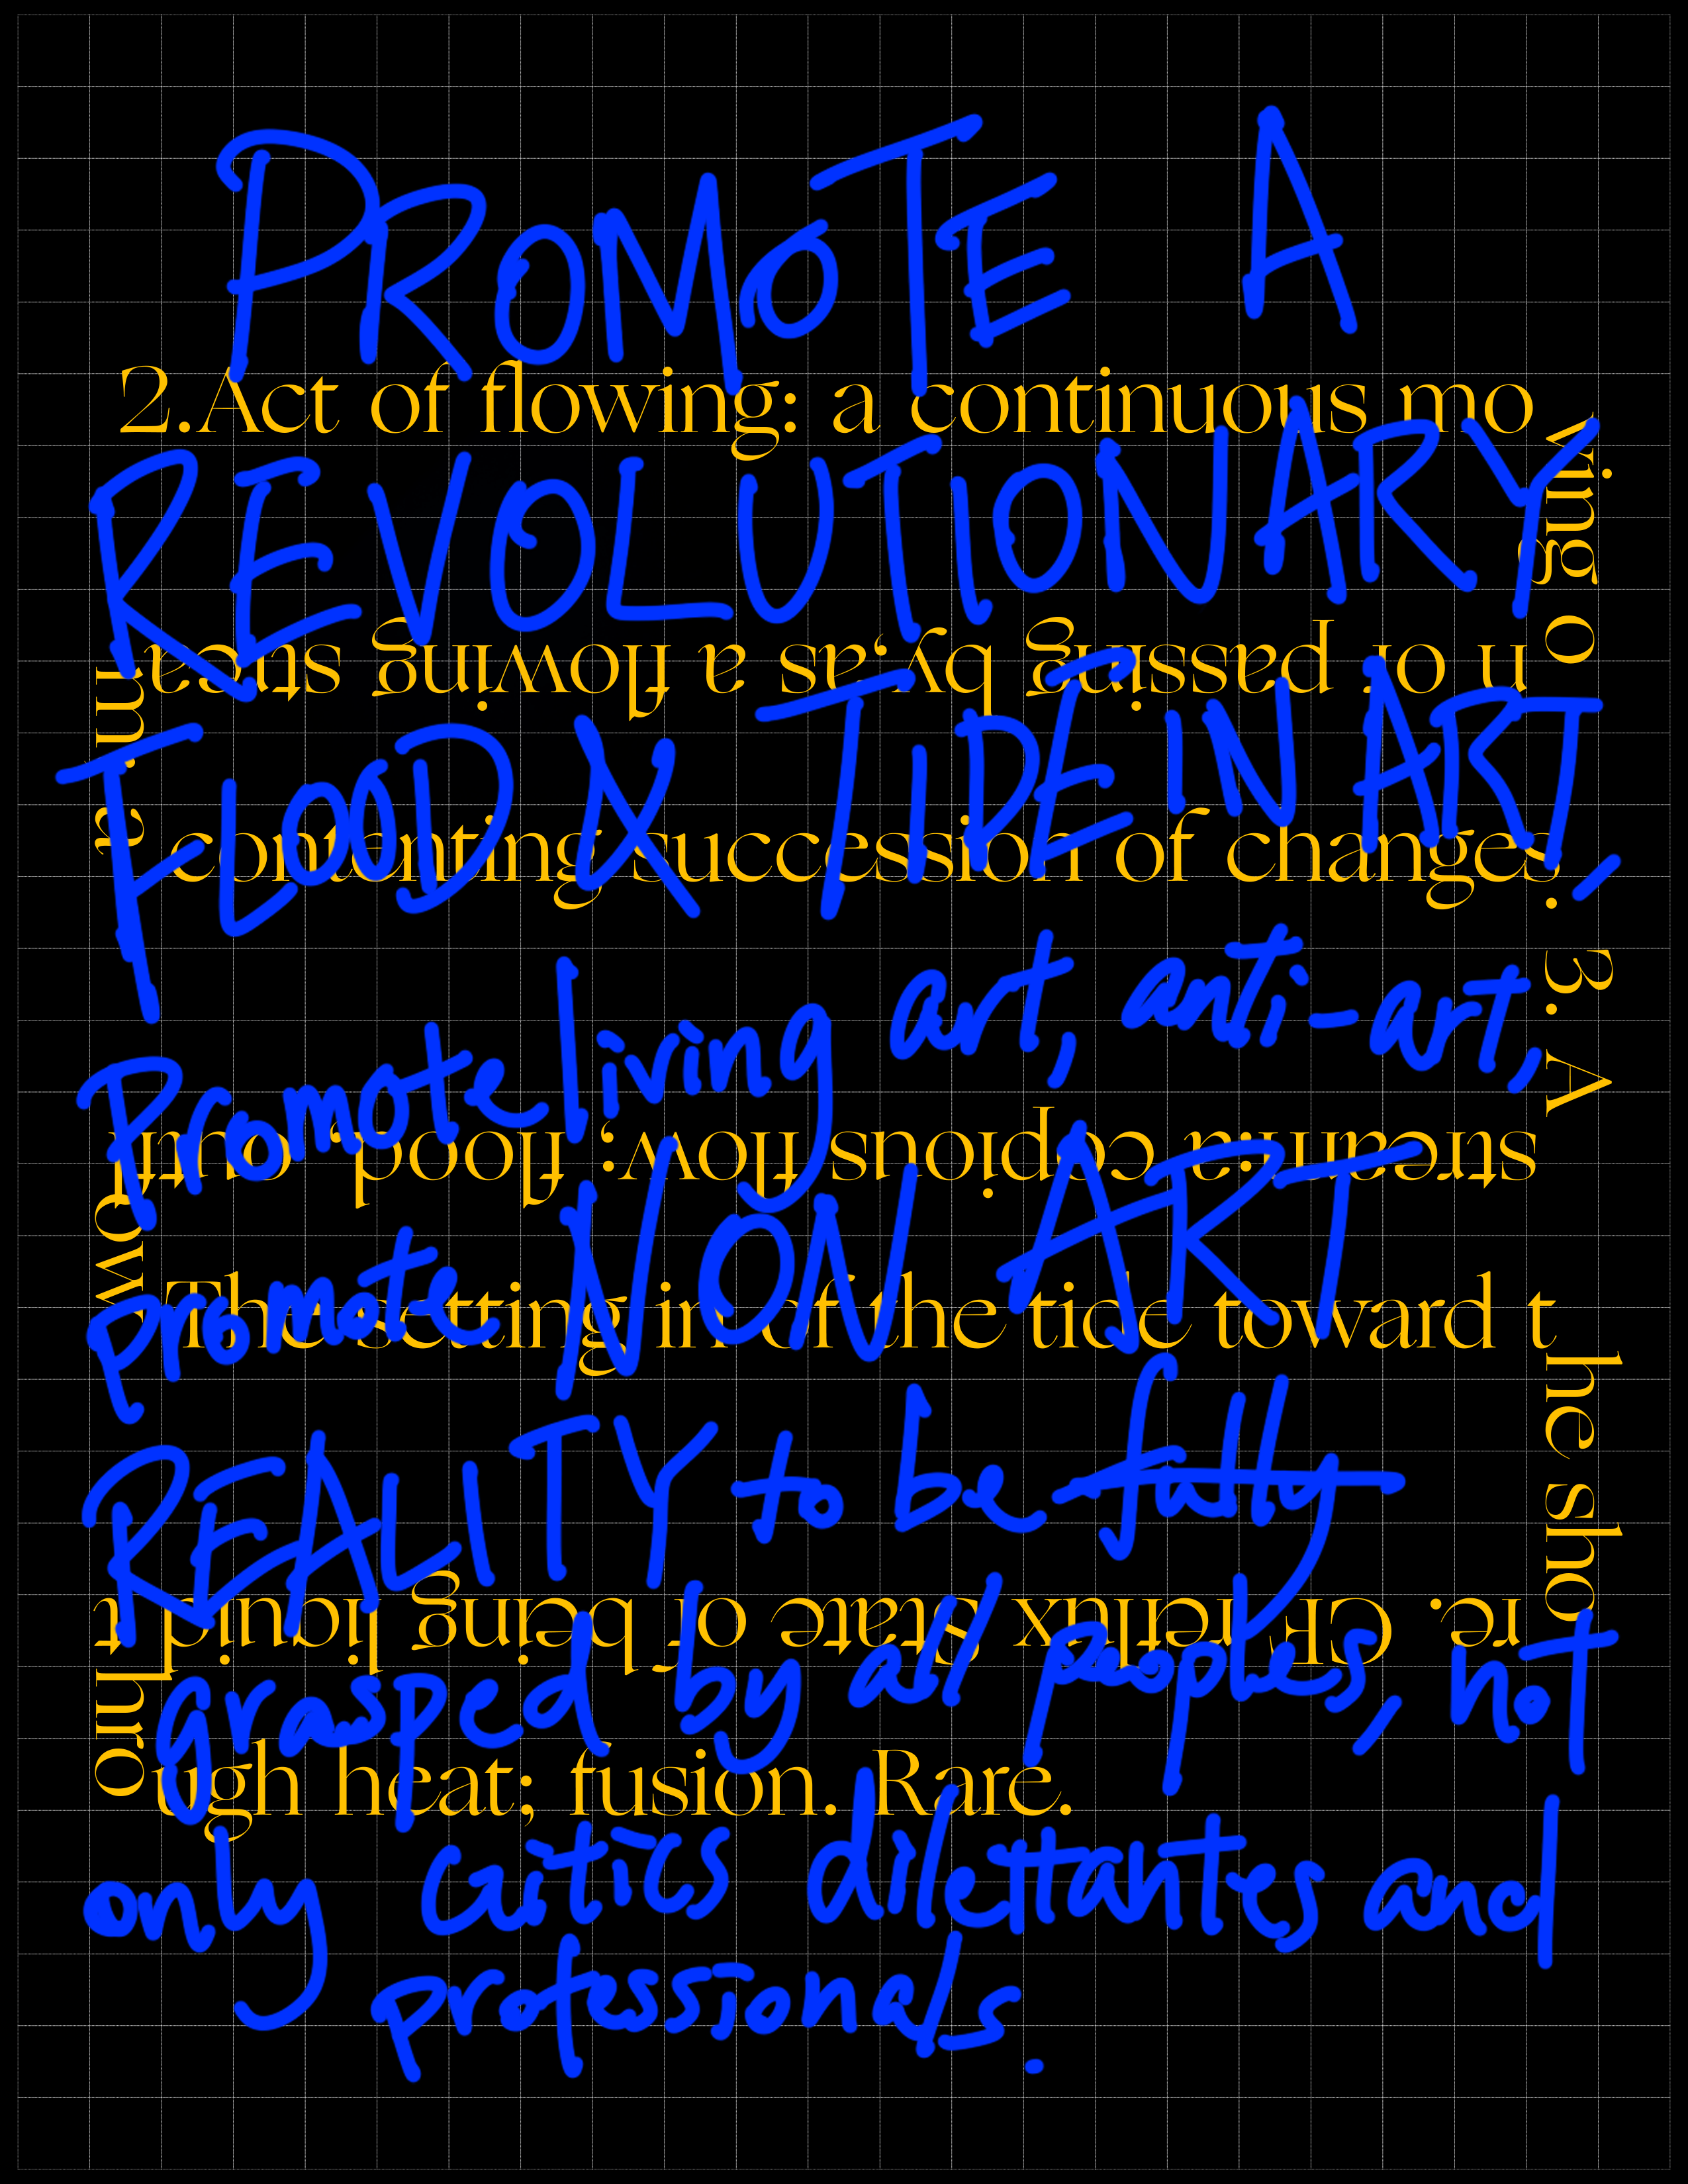 PROMOTE A
REVOLUTIONARY
FLOOD & TIDE IN ART,
Promote living art, anti-art,
promote NON ART
REALITY to be fully
grasped by all peoples, not
only critics dilettantes and
professionals.
2.Act of flowing: a continuous mo
ving o
n or passing by,as a flowing strea
m; a
contenting succession of changes
. 3. A
stream; a copious flow; flood, outfl
ow.
The setting in of the tide toward t
he sho
re. CF. reflux State of being liquid t
hro
ugh heat; fusion. Rare.